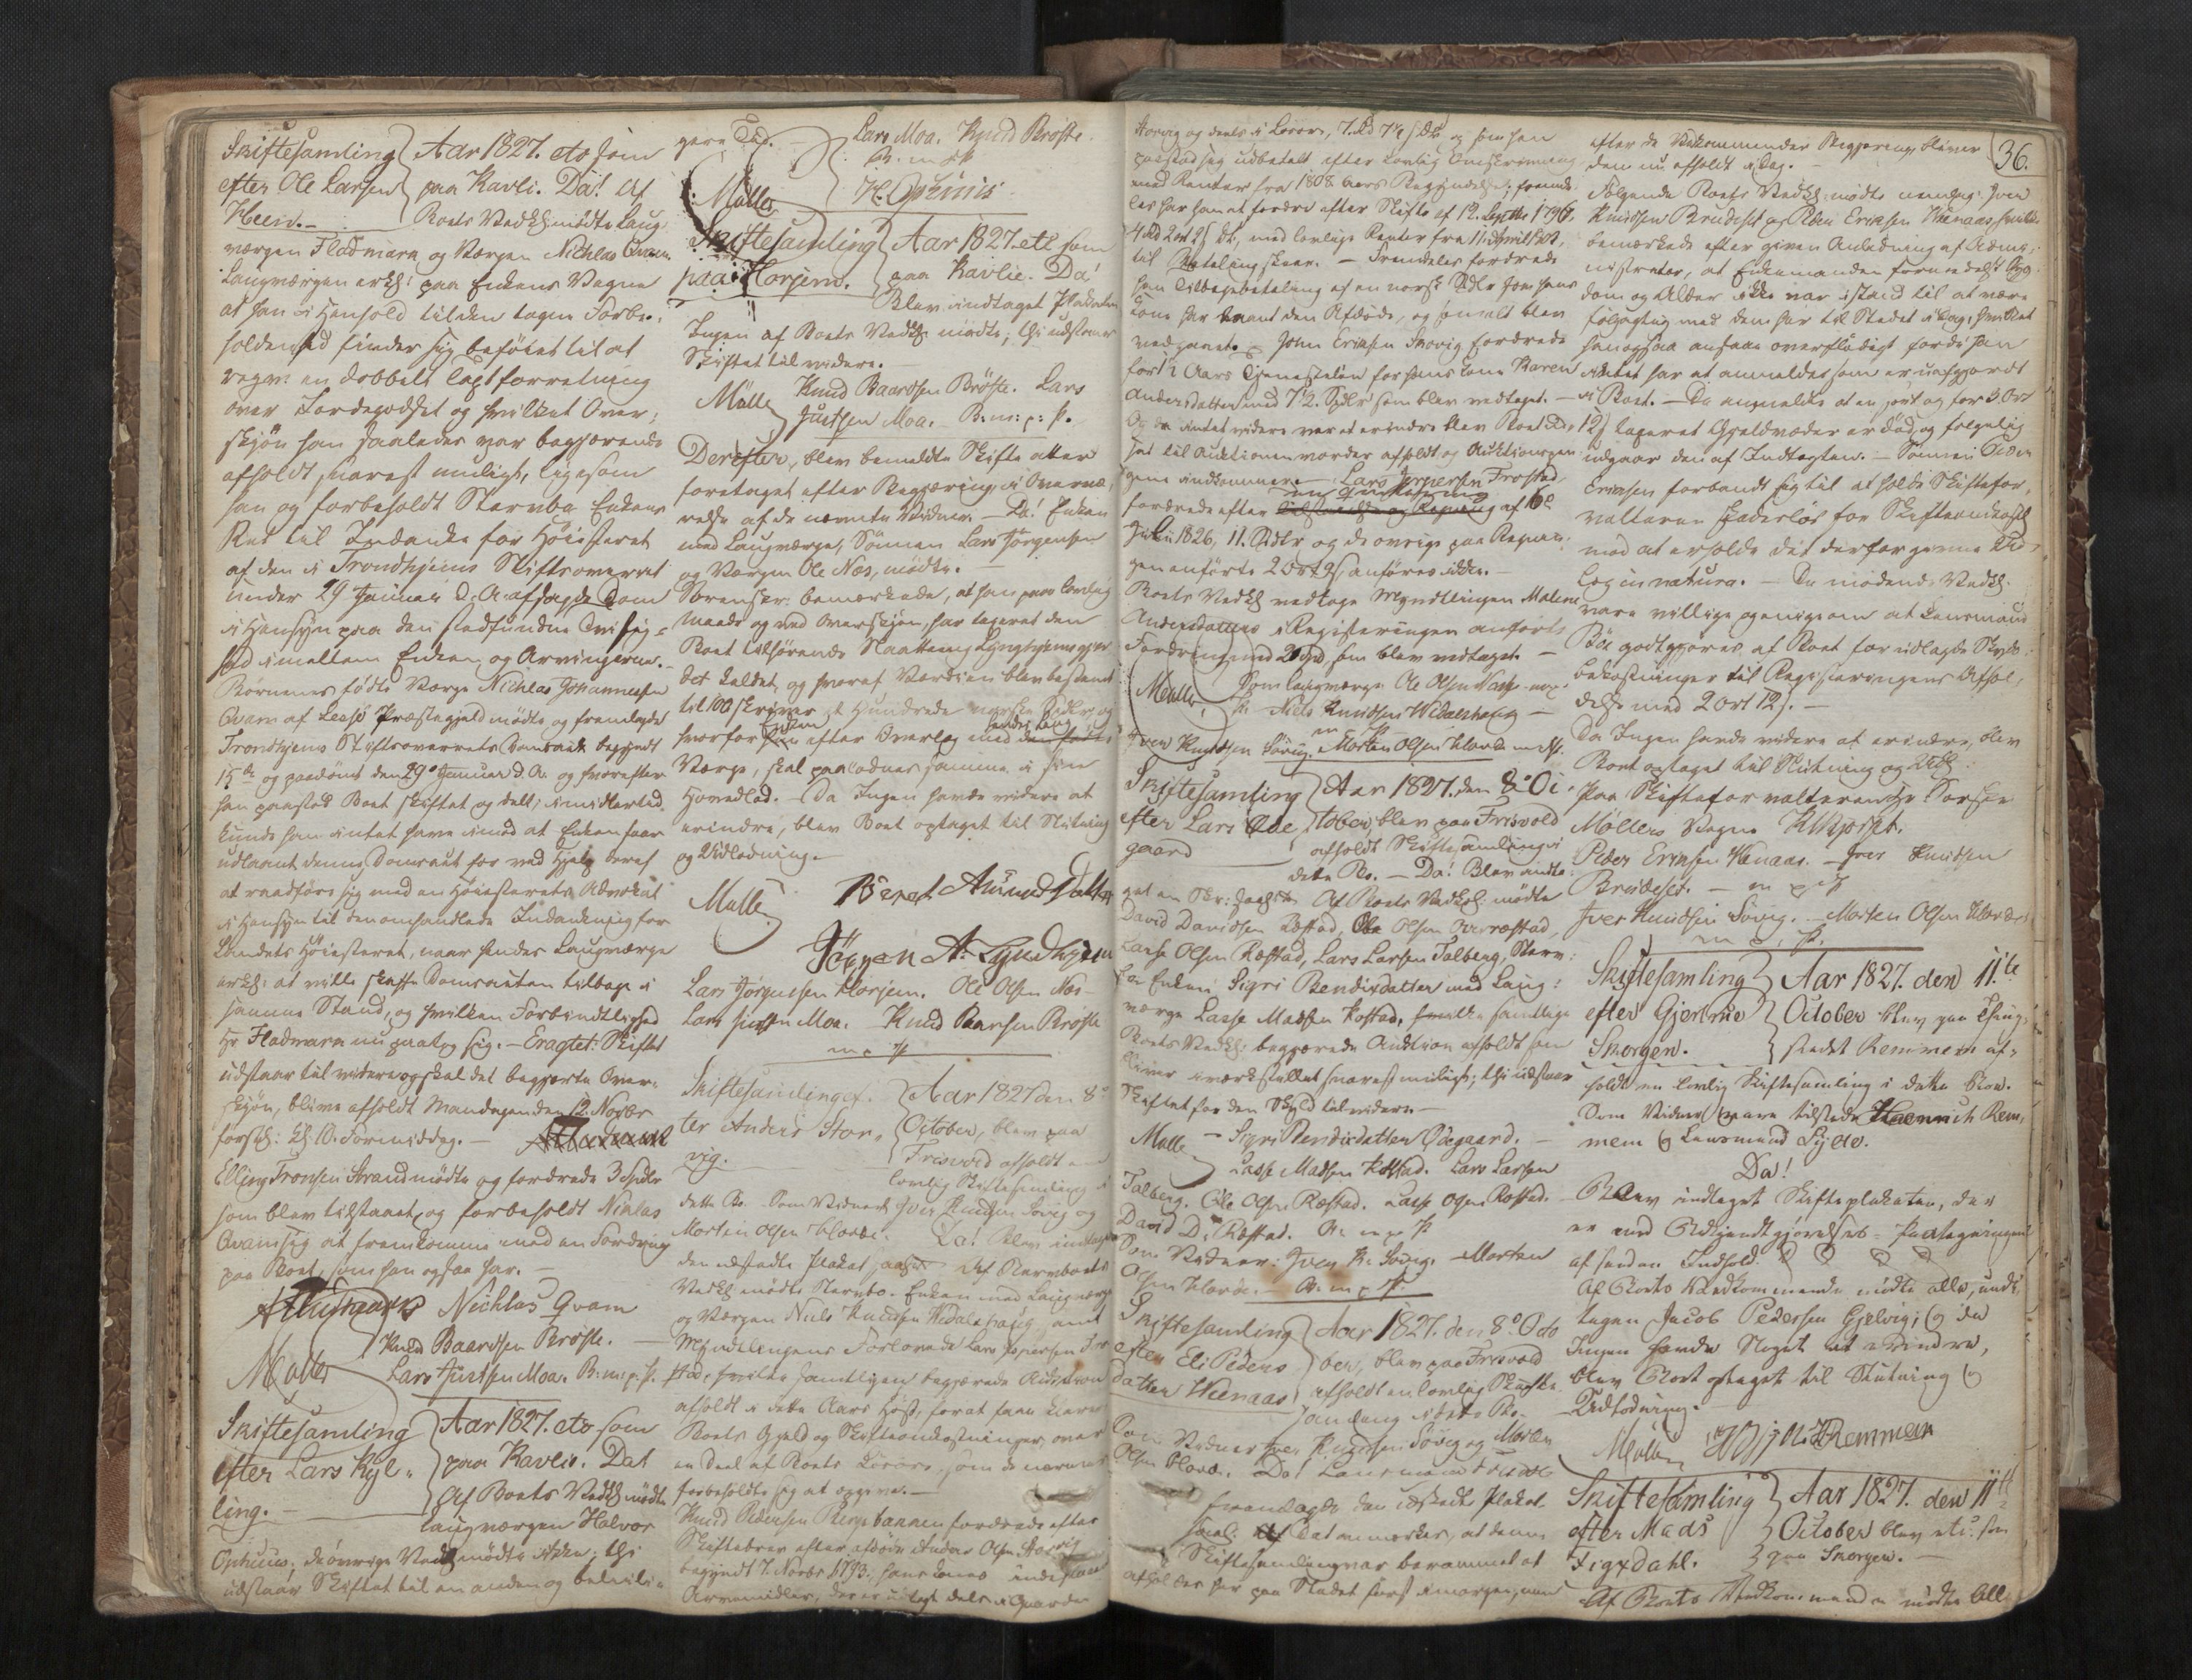 Skiftesamling
efter Ole Larsen
Heen.
Aar 1827. etc som
paa Kavli. Da! Af
Boets Vedk: mødte Laug-
værgen Fladmark og Værgen Nichlas Qvam.
Laugværgen erkl: paa Enkens Vegne
at han i Henhold til den tagne Forbe-
holdenhed finder sig beføiet til at
en dobbelt Taxtforretning
over Jordegodset og hvilket Over-
skjøn han saaledes var begjærende
afholdt snarest muligt, ligesom
han og forbeholdt Stervbo Enkens
Ret til Indanke for Høiesteret
af den i Trondhjems Stiftsoverret
under 29 Januar d. A. afsagde Dom
i Hensyn paa den stedfundne Tvistig-
hed imellem Enken og Arvingerne.
Børnenes fødte Værge Nichlas Johannesen
Qvam af Lesje Præstegjeld mødte og fremlagde
Trondhjems Stiftsoverrets Domsact begyndt
15de og paadømt den 29de Januar d. A. og hvorefter
han paastod Boet skiftet og deelt, imidlertid
kunde han intet have imod at Enken faar
udlaant denne Domsact for ved Hjelp deraf
at raadføre sig med en Høiesterets Advokat
i Hensyn til den omhandlede Indankning for
Landets Høiesteret, naar hendes Laugværge
erkl: at ville skaffe Domsacten tilbage i
samme Stand, og hvilken Forbindtlighed
Hr Fladmark nu paatog sig. - Eragtet: Skiftet
udstaar til videre og skal det begjærte Over-
skjøn, blive afholdt Mandagen den 12. Novbr
førstk: Kl. 10. Formiddag. -
Elling Tronsen Strand mødte og fordrede 3 Spdlr
som blev tilstaaet, og forbeholdt Nichlas
Qvam sig at fremkomme med en Fordring
paa Boet, som han ogsaa har. -
Nichlas Qvam
Knud Baardsen Brøste.
Møller
Lars Justsen Moa. B: m: p: P.
Skiftesamling
efter Lars Kyl-
ling.
Aar 1827. etc som
paa Kavlie. Da!
Af Boets Vedk: mødte
Laugværgen Halvor
Ophuus; de øvrige Vedk: mødte ikke; thi
udstaar Skiftet til en anden og beleili-
gere Tid.
Lars Moa. Knud Brøste.
B. m p P
Møller
H. Ophuus
Skiftesamling
paa Horjem.
Aar 1827. etc som
paa Kavlie. Da!
Blev indtaget Plakaten
Ingen af Boets Vedk: mødte; thi udstaaer
Skiftet til videre.
Møller
Knud Baardsen Brøste. Lars
Justsen Moa. B: m: p: P.
Derefter, blev bemeldte Skifte atter
foretaget efter Begjæring, i Overvæ-
relse af de nævnte Vidner. - Da! Enken
med Laugværge, Sønnen Lars Jørgensen
og Værgen Ole Næs, mødte. -
Sorenskr: bemærkede, at han paa lovlig
Maade og ved Overskjøn, har taxeret den
Boet tilhørende
det kaldet, og hvoraf Værdien blev bestemt
til 100 skriver et Hundrede norske Spdlr og
hvorfor Enken efter Overlæg med hendes Laug-
Værge, skal paalodnes samme i sin
Hovedlod. - Da Ingen havde videre at
erindre, blev Boet optaget til Slutning
og Udlodning.
Møller
Beret Amundsdatter
Jørgen A: Lyndhjem
Lars Jørgensen Horjem. Ole Olsen Næs
Lars Justsen Moa. Knud Baarsen Brøste
m p P
Skiftesamling ef-
ter Anders Hor-
vig.
Aar 1827 den 8de
October, blev paa
Frisvold afholdt en
lovlig Skiftesamling i
dette Bo. Som Vidner Iver Knudsen Sovig og
Morten Olsen Hovde. Da! Blev indtaget
den udstædte Plakat Af Stervboets
Vedk: mødte Stervbo-Enken med Laugværge
og Værgen Niels Knudsen Widalshaug samt
Myndtlingens Forlovede Lars Jespersen Fro-
stad, hvilke samtligen begjærede Auktion
afholdt i dette Aars Høst, forat faae klare
Boets Gjeld og Skifteomkostninger over
en Deel af Boets Løsøre, som de nærmere
forbeholdte sig at opgive. -
Knud Pedersen Bergsbakken fordrede efter
Skiftebrev efter afdøde Anders Olsen Horvig
begyndt 7. Novbr 1793. hans Kones indestaaende
Arvemidler, der er udlagt dels i Gaarden
36.
Horvig og deels i Løsøre, 7. Rd 7½ s DC og som han
paastod sig udbetalt efter lovlig Omskrivning
med Renter fra 1808 Aars Begyndelse; fremde-
les har han at fordre efter Skifte af 12. Septbr 1796
4 Rd 2 ort 2 s DC, med lovlige Renter fra 11. April 1808,
til Betaling skeer. - Fremdeles fordrede
han Tilbagebetaling af en norsk Spdlr som hans
Kone har laant den Afdøde, og som alt blev
vedgaaet. - John Eriksen Horvig fordrede
for 1½ Aars Tjenesteløn for hans Kone Karen
Andersdatter med 7½ Spdlr som blev vedtaget. -
Og da intet videre var at erindre blev Boet ud-
sat til Auktionen vorder afholdt og Auktionspen-
gene indkomne. - Lars Jespersen Frostad
fordrede efter en Qvittering af 16de
Juli 1826, 11. Spdlr og de øvrige paa Regnin-
gen anførte 2 ort 9 s, anføres ikke. -
Boets Vedk: vedtoge Myndtlingen Malene
Andersdatters i Registeringen anførte
Fordring med 20 Spd, som blev vedtaget. -
Møller
Som Laugværge Ole Olsen
Niels Knudsen Widalshaug
m p P
Iver Knudsen Sovig. Morten Olsen Hovde m p P.
Skiftesamling
efter Lars Øde-
gaard
Aar 1827. den 8de Oc-
tober, blev paa Frisvold
afholdt Skiftesamling i
dette Bo. - Da! Blev indta-
get en Af Boets Vedk: mødte
David Davidsen Røstad, Ole Olsen
Lasse Olsen Røstad, Lars Larsen Talberg, Sterv-
bo Enken Sigri Bendixdatter med Laug-
værge Lasse Madsen Kostad, hvilke samtlige
Boets Vedk: begjærede Auktion afholdt som
bliver iværksættet snarest muligt; thi udstaaer
Skiftet for den Skyld til videre. -
Møller
- Sigri Bendixdatter Ødegaard. -
Lasse Madsen Kostad. Lars Larsen
Talberg. Ole Olsen Røstad. Lasse Olsen Røstad.
David D: Røstad. B: m p P
Som Vidner: Iver K: Sovig. Morten
Olsen Hovde. B: m p P.
Skiftesamling
efter Eli Peders
datter Weenaas
Aar 1827. den 8de Octo
ber, blev paa Frisvold
afholdt en lovlig Skifte-
samling i dette Bo.
Som Vidner Iver Knudsen Sovig og Morten
Olsen Hovde. Da! Lensmand
fremlagde den udstædte Plakat
Det anmærkes, at denne
Skiftesamling var berammet at
afholdes her paa Stedet først imorgen, men
efter de Vedkommendes Begjæring, bliver
den nu afholdt i Dag. -
Følgende Boets Vedk: mødte nemlig: Iver
Knudsen Brudeset og Peder Eriksen Weenaas hvilke
bemærkede efter given Anledning af Admi-
nistrator, at Enkemanden formedelst Syg-
dom og Alder ikke var istand til at være
følgagtig med dem her til Stedet i Dag, hvilket
han ogsaa ansaae overflødigt fordi han
intet har at anmelde som er uafgjordt
i Boet. - Da anmeldte at en sort og for 3 Ort
12 s taxeret Gjeldvæder er død, og følgelig
udgaar den af Indtægten. - Sønnen Peder
Eriksen forbandt sig til at holde Skiftefor-
valteren skadesløs for Skifteomkost:
mod at erholde det derfor gjorte Ud-
læg in natura. - De mødende Vedk:
vare villige og enige om at Lensmand
Bør godtgjøres af Boet for udlagte Skyds-
bekostninger til Registeringens Afhol-
delse med 2 ort 12 s. -
Da Ingen havde videre at erindre, blev
Boet optaget til Slutning og Udl:
Paa Skifteforvalteren Hr Sorskr
Møllers Vegne
Peder Eriksen Wenaas. - Iver Knudsen
Brudeset. - m p P
Iver Knudsen Sovig. - Morten Olsen Hovde
m p P.
Skiftesamling
efter Gjertrue
Skorgen.
Aar 1827. den 11.te
October blev paa Thing-
stedet Remmem af-
holdt en lovlig Skiftesamling i dette Boe.
Som Vidner vare tilstede Heinrich Rem-
mem og Lensmand Lysto.
Da!
Blev indtaget Skifteplakaten, der
er med Bekjendtgjørelses-Paategninger
af saadan Indhold.
Af Boets Vedkommende mødte alle, und-
tagen Jacob Pedersen Gjelvig; og da
Ingen havde Noget at erindre,
blev Boet optaget til Slutning og
Udlodning.
Møller H. Remmem
Skiftesamling
efter Mads
Aar 1827. den 11te
October blev etc. som
paa Skorgen. -
Af Boets Vedkommende mødte Alle